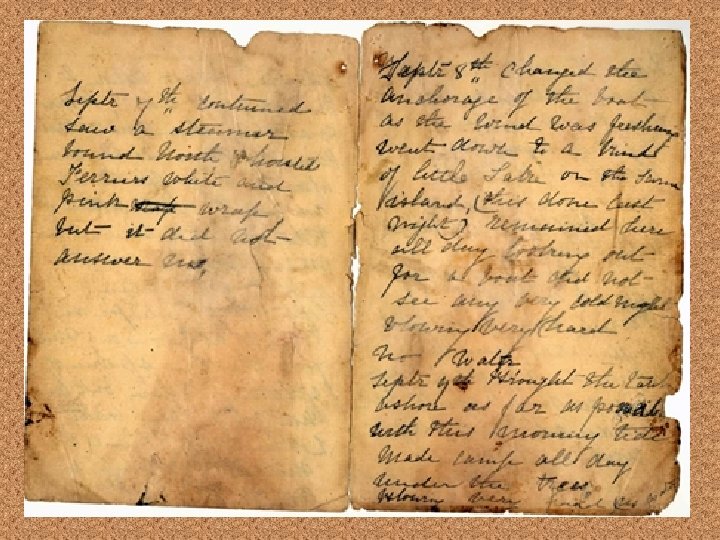 Septr 7th continued
saw a steamer
bound North & hoisted
white and
pink wrap
but it did not
answer me,
Septr 8th changed the
anchorage of the boat
as the wind was freshening
went down to a kind
of little Lake on the same
island, (this done last
night) Remained here
all day looking out
for a boat did not
see any very cold night
blowing very hard
no water
Septr 9th Brought the
ashore as far as possible
with this morning tide
made camp all day
under the trees
blowing very